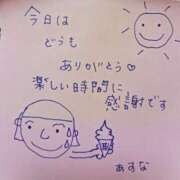 今日は
どうも
ありがとう♡
楽しい時間に
感謝です
あすな